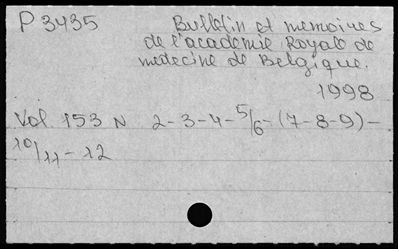 P 3435 Bulletin et memoires
de l'academie Royale de
medecine de Belgique.
1998
Vol. 153 N 2-3-4-5/6-(7-8-9)-
10/11-12